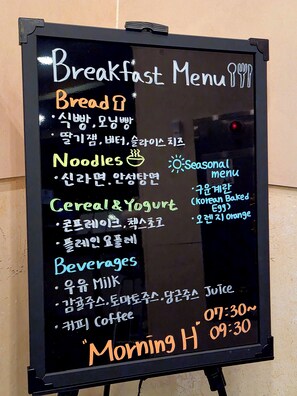 Breakfast Menu
Bread
· 식빵, 모닝빵
· 딸기잼, 버터, 슬라이스치즈
Noodles
· 신라면, 안성탕면
Cereal & Yogurt
· 콘프레이크, 첵스초코
· 플레인요플레
Beverages
· 우유 Milk
· 감귤주스, 토마토주스, 당근주스 Juice
· 커피 Coffee
Seasonal
menu
· 구운계란
(Korean Baked
Egg)
· 오렌지 orange
"Morning H"
07:30~
09:30